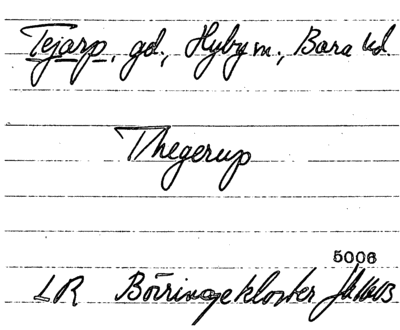 Tejarp, gd., Hyby sn, Bara hd.
Thegerup
5006
LR Börringekloster Jb 1603